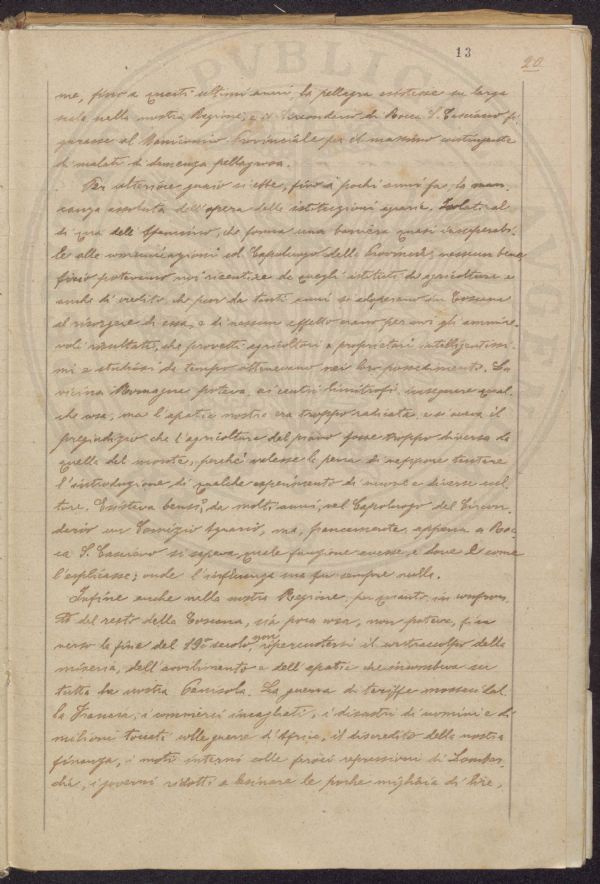 13
20
me, fino a questi ultimi anni, la pellagra esistesse su larga
scala nella nostra Regione, e il Circondario di Rocca S. Casciano fi-
gurasse al Manicomio Provinciale per il massimo contingente
di malati di demenza pellagrosa.
Per ulteriore guaio si ebbe, fino a pochi anni fa, la man-
canza assoluta dell'opera delle istituzioni agrarie. Isolati al
di qua dell'Apennino, che forma una barriera quasi insuperabi-
le alle comunicazioni col Capoluogo della Provincia, nessun bene-
ficio potevamo noi risentire da quegli istituti di agricoltura e
anche di credito, che pur da tanti anni si adoperano in Toscana
al risorgere di essa, e di nessun effetto erano per noi gli ammire-
voli risultati, che provetti agricoltori e proprietari intelligentissi-
mi e studiosi da tempo ottenevano nei loro possedimenti. La
vicina Romagna poteva, ai centri limitrofi, insegnare qual-
che cosa, ma l'apatia nostra era troppo radicata e si aveva il
pregiudizio che l'agricoltura del piano fosse troppo diversa da
quella del monte, perchè valesse la pena di neppure tentare
l'introduzione di qualche esperimento di nuove e diverse col-
ture. Esisteva bensì, da molti anni, nel Capoluogo del Circon-
dario un Comizio Agrario, ma, francamente, appena a Roc-
ca S. Casciano si sapeva quale funzione avesse, e dove e come
l'esplicasse; onde l'influenza sua fu sempre nulla.
Infine anche nella nostra Regione, per quanto in confron-
to del resto della Toscana, sia poca cosa, non poteva, fin
verso la fine del 19° secolo, non ripercuotersi il contraccolpo della
miseria, dell'avvilimento e dell'apatia che incombeva su
tutta la nostra Penisola. La guerra di tariffe mossaci dal-
la Francia; i commerci incagliati, i disastri di uomini e di
milioni toccati colle guerre d'Africa, il discredito della nostra
finanza, i moti interni colle feroci repressioni di Lombar-
dia, i governi ridotti a lesinare le poche migliaia di lire,